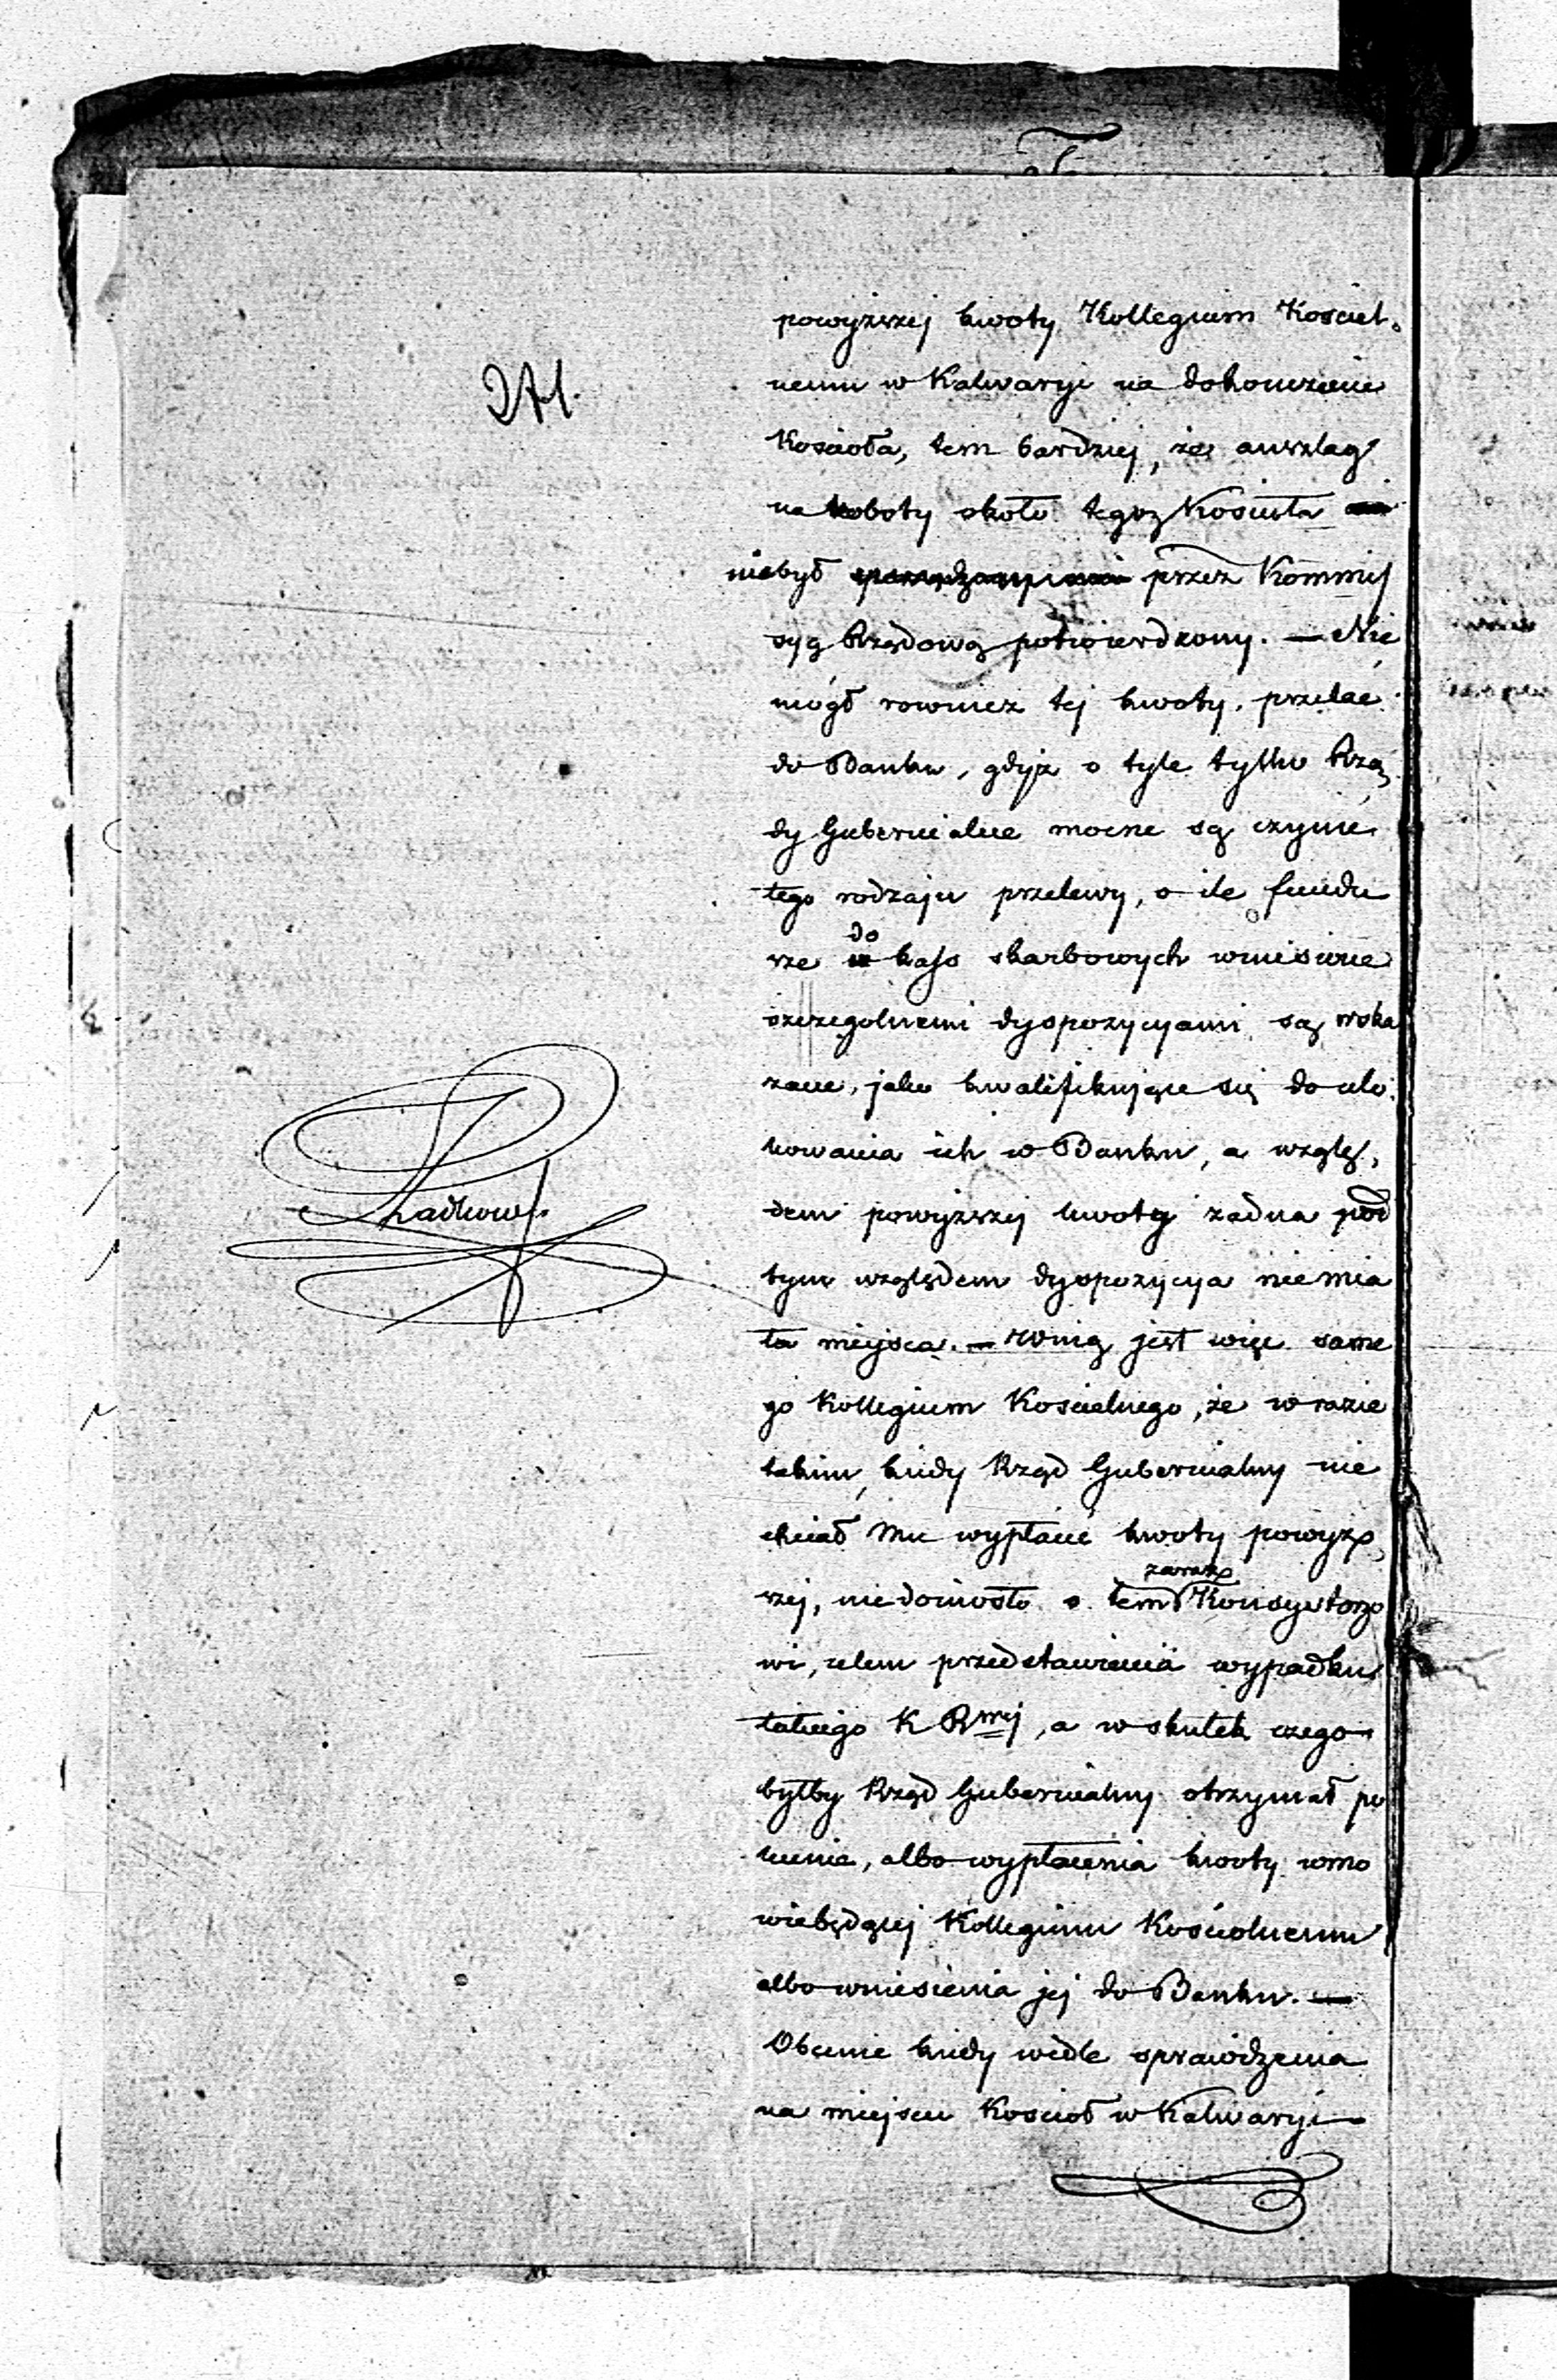 271.
powyższej kwoty Kollegium Kościel-
nemu w Kalwaryi na dokończenie
Kościoła, tem bardziej, że anszlag
na roboty około tegoż Kościoła
niebył przez Kommis
syą Rządową potwierdzony. — Nie
mógł rownież tej kwoty, przelać
do Banku, gdyż o tyle tylko Rzą
dy Gubernialne mocne są czynić
tego rodzaju przelewy, o ile fundu
sze do kass skarbowych wniesione
szczegolnemi dyspozycyami są wska
zane, jako kwalifikujące się do ulo-
kowania ich w Banku, a wzglę-
dem powyższej kwoty żadna pod
tym względem dyspozycya niemia
ła miejsca. — Winą jest więc same
go Kollegium Kościelnego, że w razie
takim, kiedy Rząd Gubernialny nie
chciał mu wypłacić kwoty powyż-
szej, niedoniosło o tem zaraz Konsystorzo
wi, celem przedstawienia wypadku
takiego K Rwej, a w skutek czego
byłby Rząd Gubernialny otrzymał po
lecenie, albo wypłacenia kwoty w mo
wie będącej Kollegium Kościelnemu
albo wniesienia jej do Banku. —
Obecnie kiedy wedle sprawdzenia
na miejscu Kościoł w Kalwaryi —